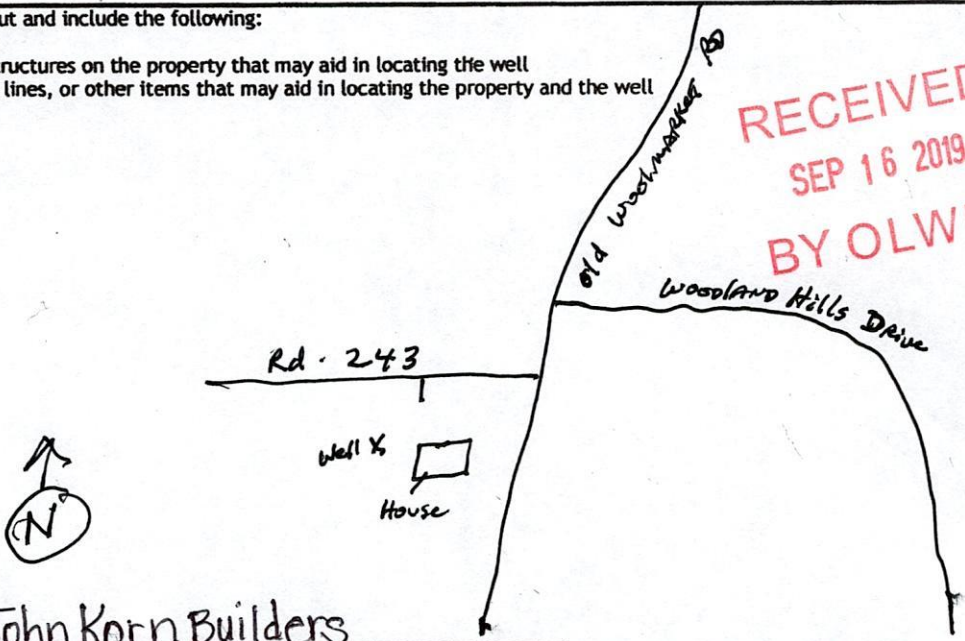 ut and include the following:
ructures on the property that may aid in locating the well
lines, or other items that may aid in locating the property and the well
RECEIVED
SEP 16 2019
BY OLW
Old Woolmarket RD
Woodland Hills Drive
Rd. 243
Well X
House
N
John Korn Builders